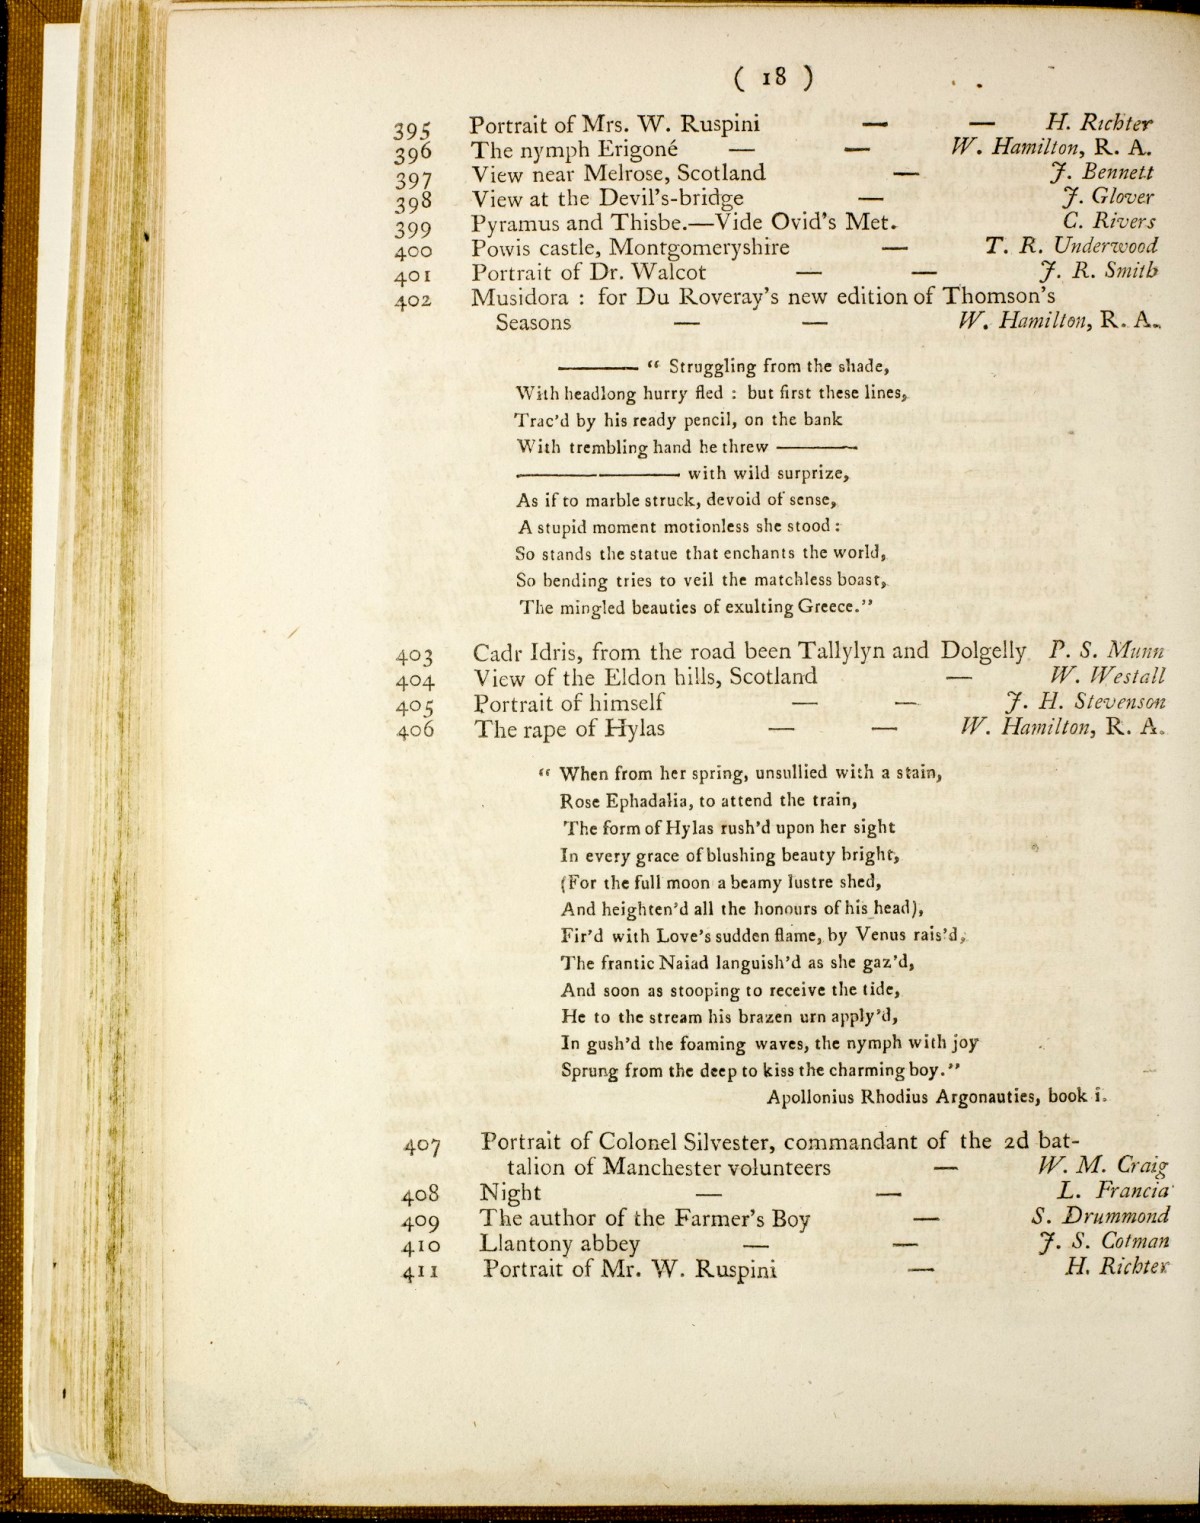 ( 18 )
395 Portrait of Mrs. W. Ruspini — — H. Richter
396 The nymph Erigoné — — W. Hamilton, R. A.
397 View near Melrose, Scotland — J. Bennett
398 View at the Devil's-bridge — J. Glover
399 Pyramus and Thisbe.—Vide Ovid's Met. C. Rivers
400 Powis castle, Montgomeryshire — T. R. Underwood
401 Portrait of Dr. Walcot — — J. R. Smith
402 Musidora : for Du Roveray's new edition of Thomson's
Seasons — — W. Hamilton, R. A.
——— “ Struggling from the shade,
With headlong hurry fled : but first these lines,
Trac'd by his ready pencil, on the bank
With trembling hand he threw ———
—————— with wild surprize,
As if to marble struck, devoid of sense,
A stupid moment motionless she stood :
So stands the statue that enchants the world,
So bending tries to veil the matchless boast,
The mingled beauties of exulting Greece.”
403 Cadr Idris, from the road been Tallylyn and Dolgelly P. S. Munn
404 View of the Eldon hills, Scotland — W. Westall
405 Portrait of himself — — J. H. Stevenson
406 The rape of Hylas — — W. Hamilton, R. A.
“ When from her spring, unsullied with a stain,
Rose Ephadalia, to attend the train,
The form of Hylas rush'd upon her sight
In every grace of blushing beauty bright,
(For the full moon a beamy lustre shed,
And heighten'd all the honours of his head),
Fir'd with Love's sudden flame, by Venus rais'd,
The frantic Naiad languish'd as she gaz'd,
And soon as stooping to receive the tide,
He to the stream his brazen urn apply'd,
In gush'd the foaming waves, the nymph with joy
Sprung from the deep to kiss the charming boy.”
Apollonius Rhodius Argonauties, book i.
407 Portrait of Colonel Silvester, commandant of the 2d bat-
talion of Manchester volunteers — W. M. Craig
408 Night — — L. Francia
409 The author of the Farmer's Boy — S. Drummond
410 Llantony abbey — — J. S. Cotman
411 Portrait of Mr. W. Ruspini — H. Richter